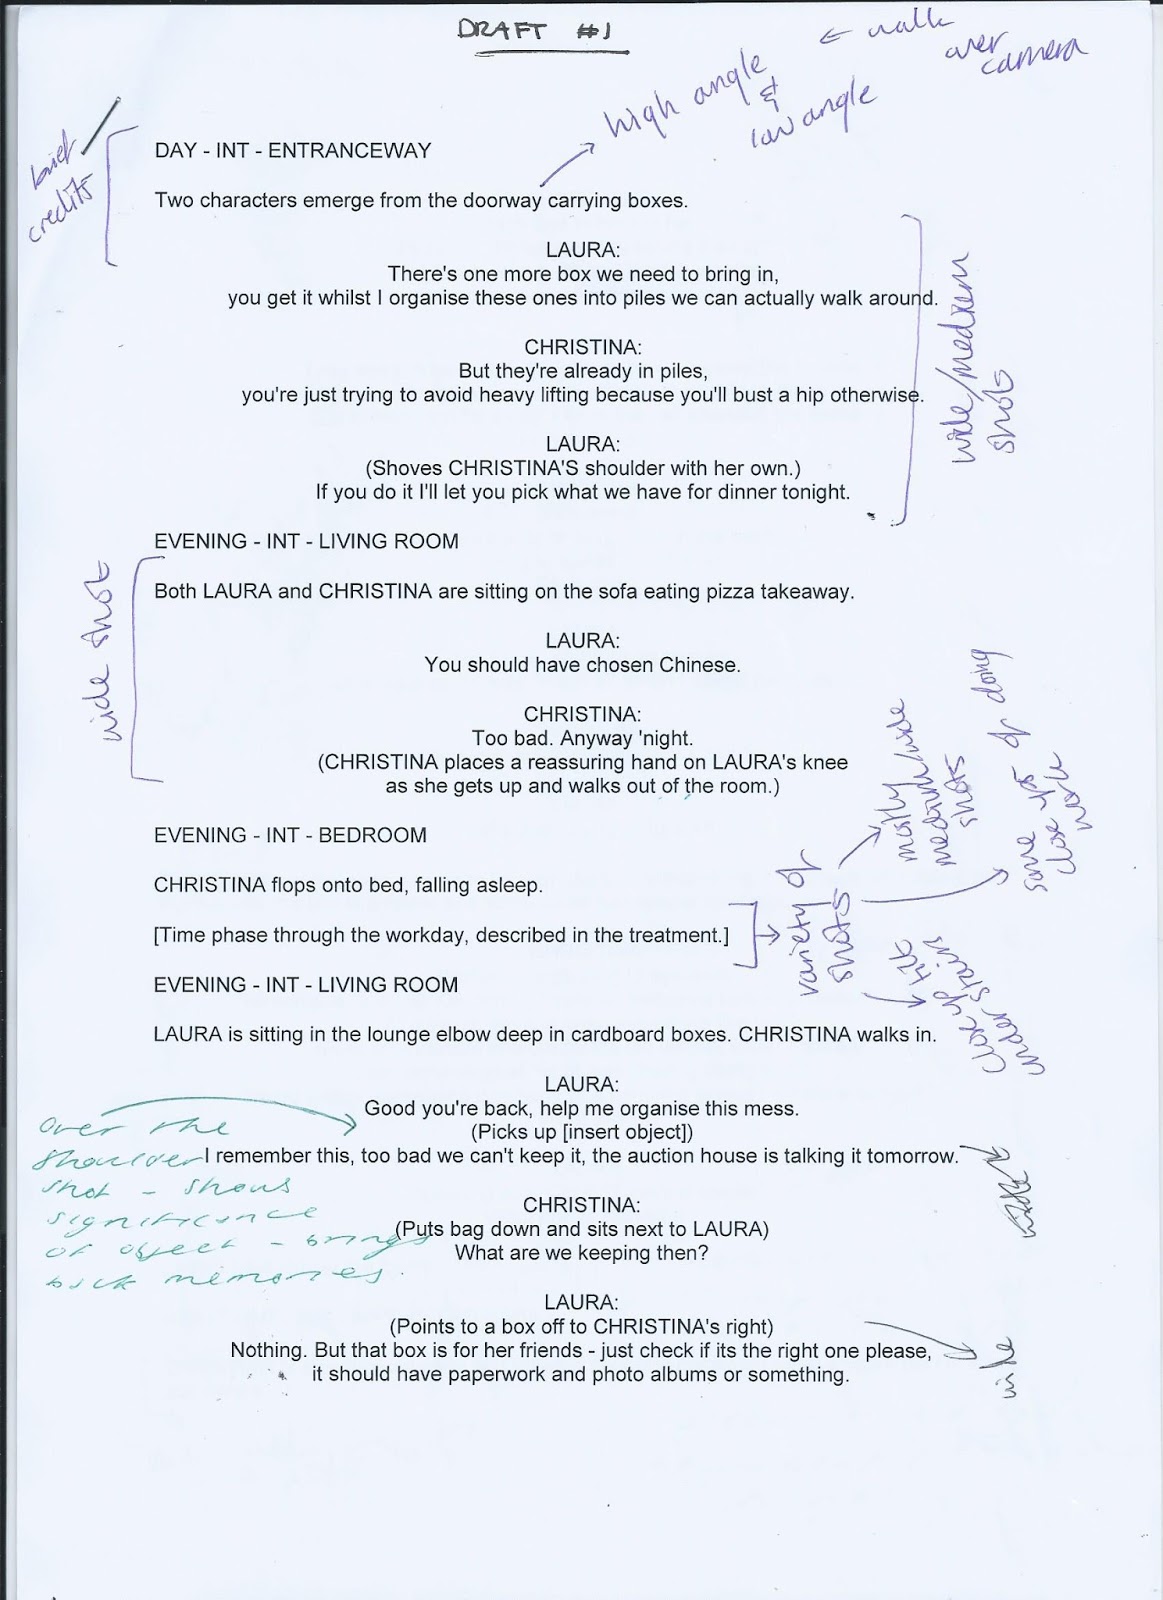 DRAFT #1
← walk
over
camera
high angle
&
low angle
brief
credits
DAY - INT - ENTRANCEWAY
Two characters emerge from the doorway carrying boxes.
LAURA:
There's one more box we need to bring in,
you get it whilst I organise these ones into piles we can actually walk around.
CHRISTINA:
But they're already in piles,
you're just trying to avoid heavy lifting because you'll bust a hip otherwise.
LAURA:
(Shoves CHRISTINA'S shoulder with her own.)
If you do it I'll let you pick what we have for dinner tonight.
wide/medium
shots
EVENING - INT - LIVING ROOM
wide shot
Both LAURA and CHRISTINA are sitting on the sofa eating pizza takeaway.
LAURA:
You should have chosen Chinese.
CHRISTINA:
Too bad. Anyway 'night.
(CHRISTINA places a reassuring hand on LAURA's knee
as she gets up and walks out of the room.)
EVENING - INT - BEDROOM
CHRISTINA flops onto bed, falling asleep.
[Time phase through the workday, described in the treatment.]
variety of
shots
mostly
medium/wide
shots
some
close ups of doing
work
close up
under stairs
EVENING - INT - LIVING ROOM
LAURA is sitting in the lounge elbow deep in cardboard boxes. CHRISTINA walks in.
LAURA:
Good you're back, help me organise this mess.
(Picks up [insert object])
I remember this, too bad we can't keep it, the auction house is talking it tomorrow.
over the
shoulder
shot - shows
significance
of object - brings
back memories.
CHRISTINA:
(Puts bag down and sits next to LAURA)
What are we keeping then?
LAURA:
(Points to a box off to CHRISTINA's right)
Nothing. But that box is for her friends - just check if its the right one please,
it should have paperwork and photo albums or something.
wide